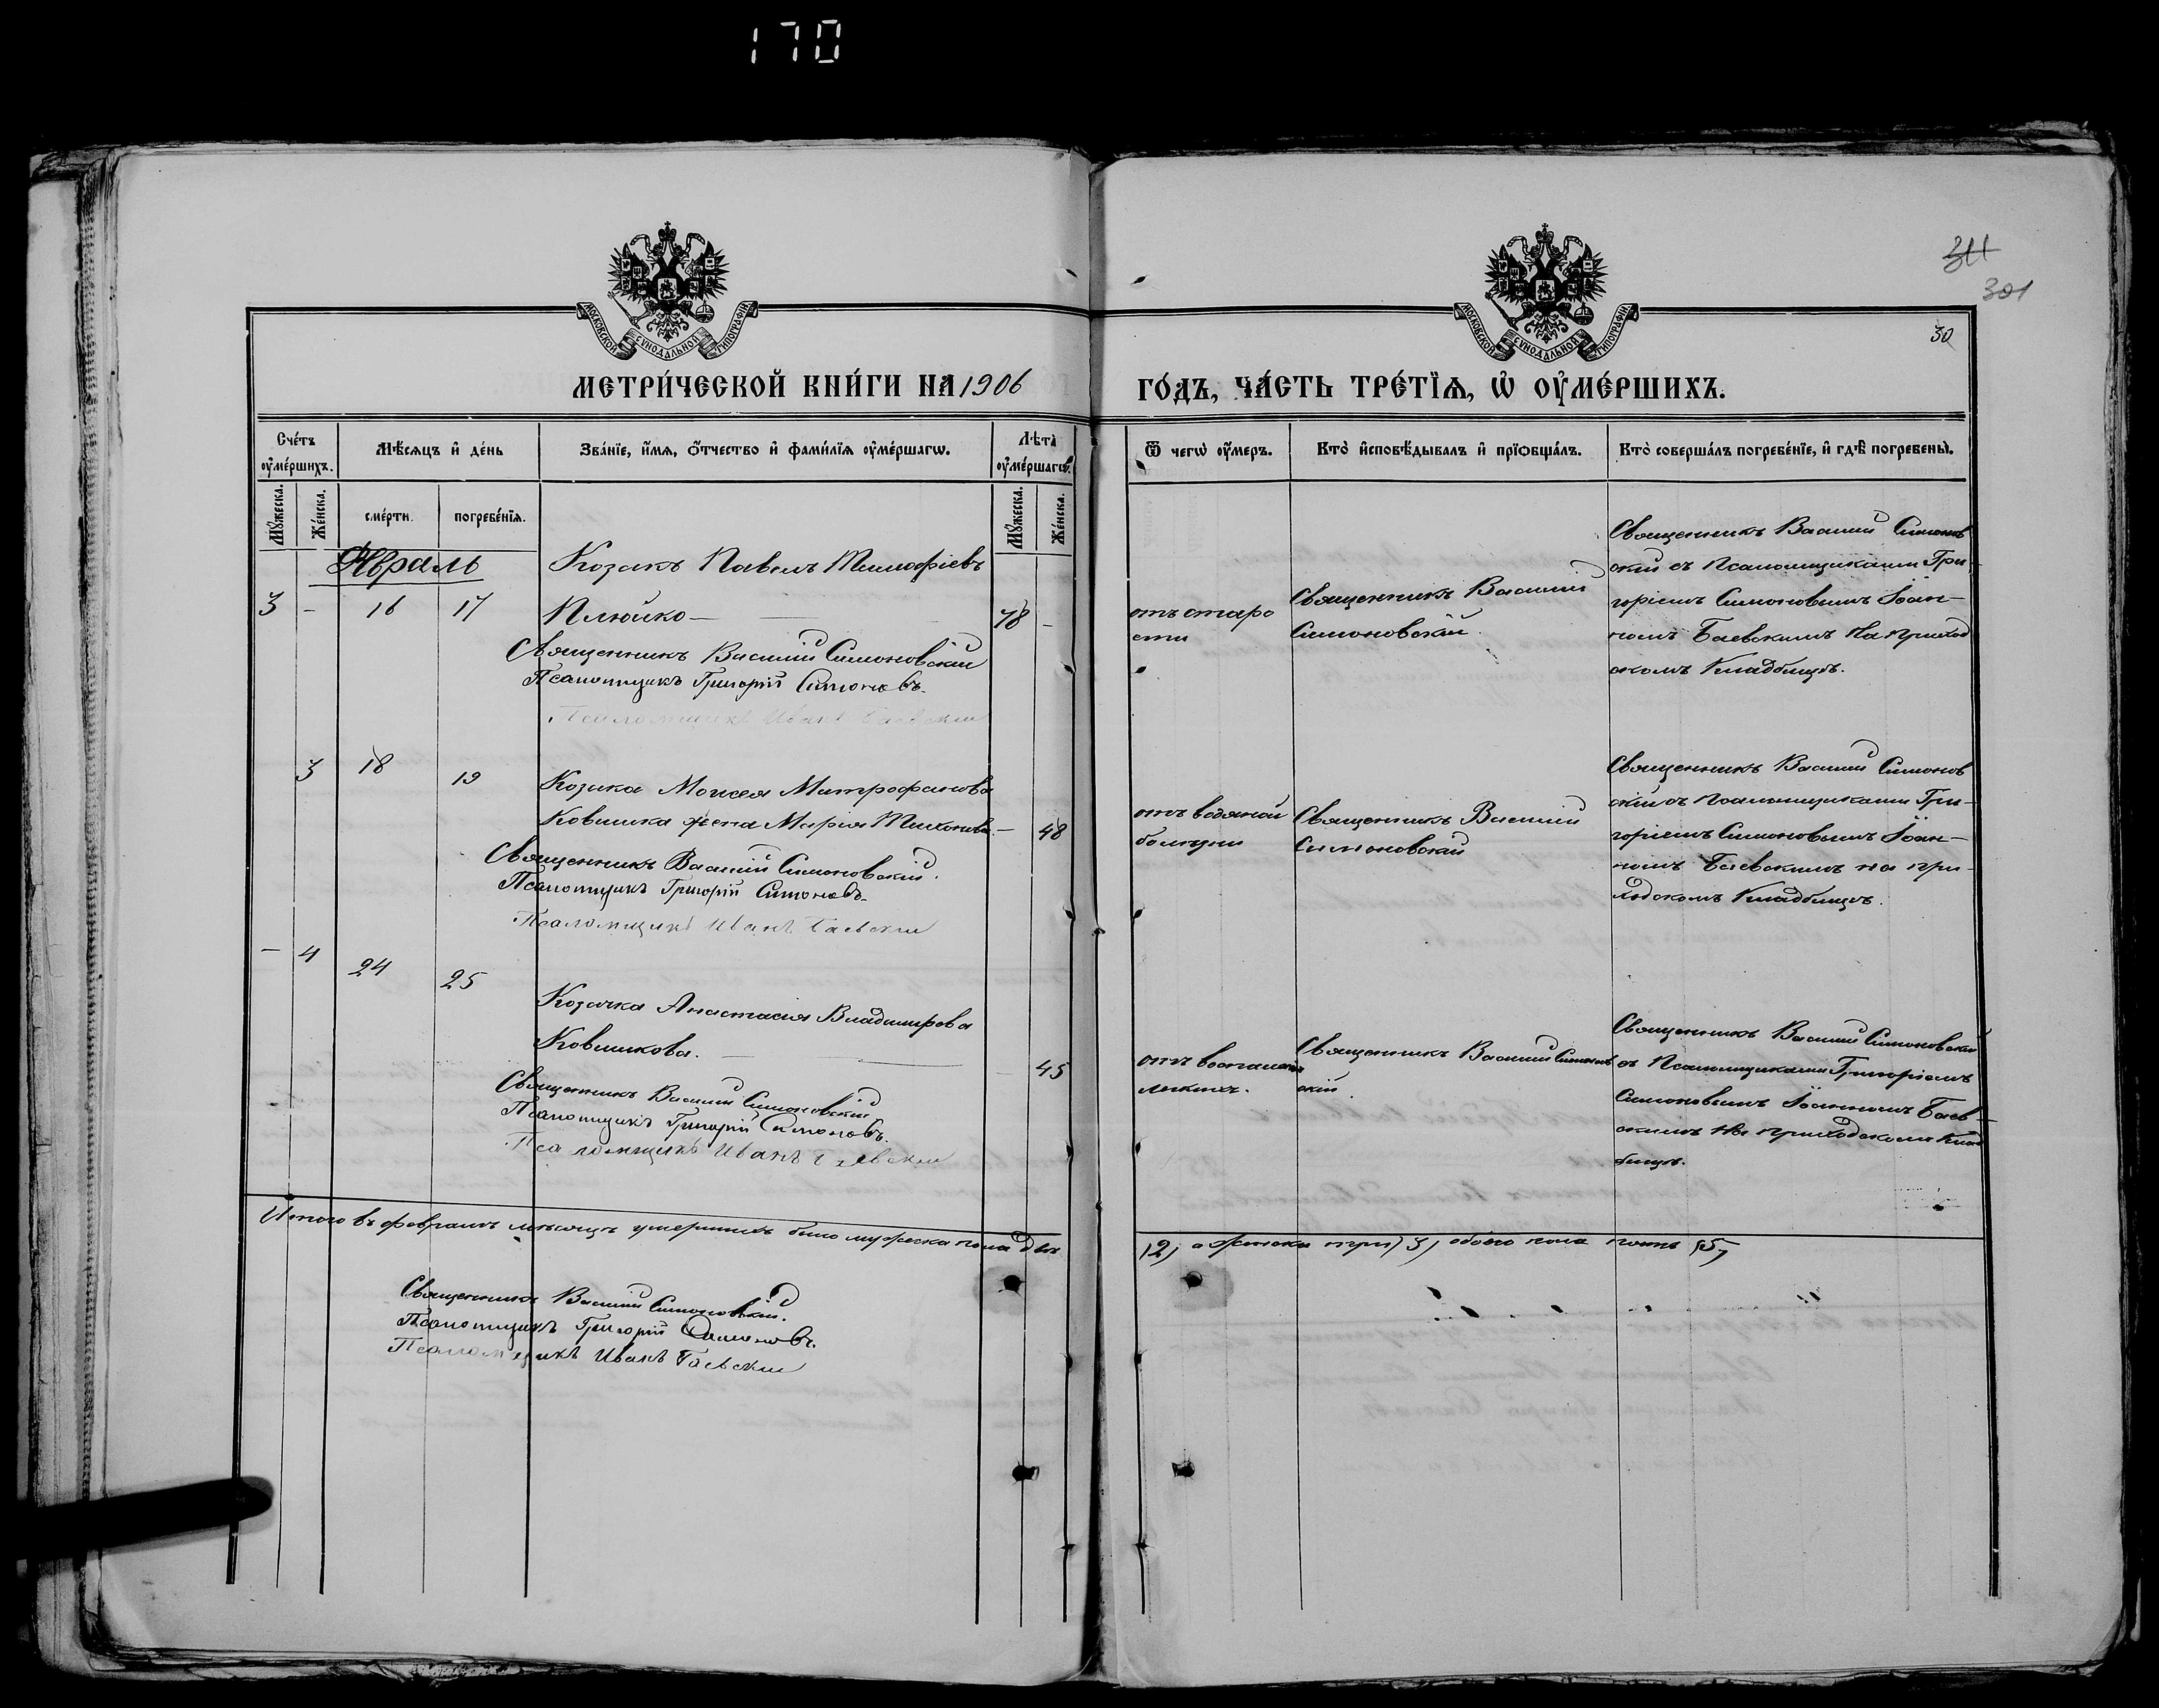 170
311
301
30
МОСКОВСКОЙ СУНОДАЛЬНОЙ ТИПОГРАФІИ
МОСКОВСКОЙ СУНОДАЛЬНОЙ ТИПОГРАФІИ
МЕТРИ́ЧЕСКОЙ КНИ́ГИ НА 1906
ГО́ДЪ, ЧА́СТЬ ТРЕ́ТЇѦ, Ѡ҆ ОУ҆МЕ́РШИХЪ.
Сче́тъ оу҆ме́ршихъ.
Мѣ́сѧцъ и҆ де́нь
Зва́нїе, и҆́мѧ, ѻ҆́тчество и҆ фами́лїѧ оу҆ме́ршагѡ.
Лѣ́та оу҆ме́ршагѡ.
Ѿ чегѡ̀ оу҆́меръ.
Кто̀ и҆сповѣ́дывалъ и҆ прїѡбща́лъ.
Кто̀ соверша́лъ погребе́нїе, и҆ гдѣ̀ погребены̀.
Мꙋ́жеска.
Же́нска.
сме́рти.
погребе́нїѧ.
Мꙋ́жеска.
Же́нска.
Февраль
3 - 16 17
Козакъ Павелъ Тимофіевъ
Плюйко
78 -
Священникъ Василій Симоновскій
Псаломщикъ Григорій Симоновъ.
Псаломщикъ Иванъ Баевскій
отъ старо
сти
Священникъ Василій
Симоновскій.
Священникъ Василій Симонов
скій съ Псаломщиками Гри
горіемъ Симоновымъ Іоан-
номъ Баевскимъ На приход
скомъ Кладбищѣ.
3 18 19
Козака Моисея Митрофанова
Ковшика жена Марія Тихонова - 48
Священникъ Василій Симоновскій.
Псаломщикъ Григорій Симоновъ.
Псаломщикъ Иванъ Баевскій
отъ водяной
болѣзни
Священникъ Василій
Симоновскій
Священникъ Василій Симонов
скій съ псаломщиками Гри-
горіемъ Симоновымъ Іоан-
номъ Баевскимъ на при-
ходскомъ Кладбищѣ.
- 4 24 25
Козачка Анастасія Владимірова
Ковшикова.
45
Священникъ Василій Симоновскій
Псаломщикъ Григорій Симоновъ.
Псаломщикъ Иванъ Баевскій
отъ воспаленія
легкихъ.
Священникъ Василій Симонов
скій
Священникъ Василій Симоновскій
съ Псаломщиками Григоріемъ
Симоновымъ Іоанномъ Баев-
скимъ На приходскомъ Клад
бищѣ.
Итого въ февралѣ мѣсяцѣ умершихъ было мужеска пола два
(2) а женска три (3) обоего пола пять (5)
Священникъ Василій Симоновскій.
Псаломщикъ Григорій Симоновъ.
Псаломщикъ Иванъ Баевскій